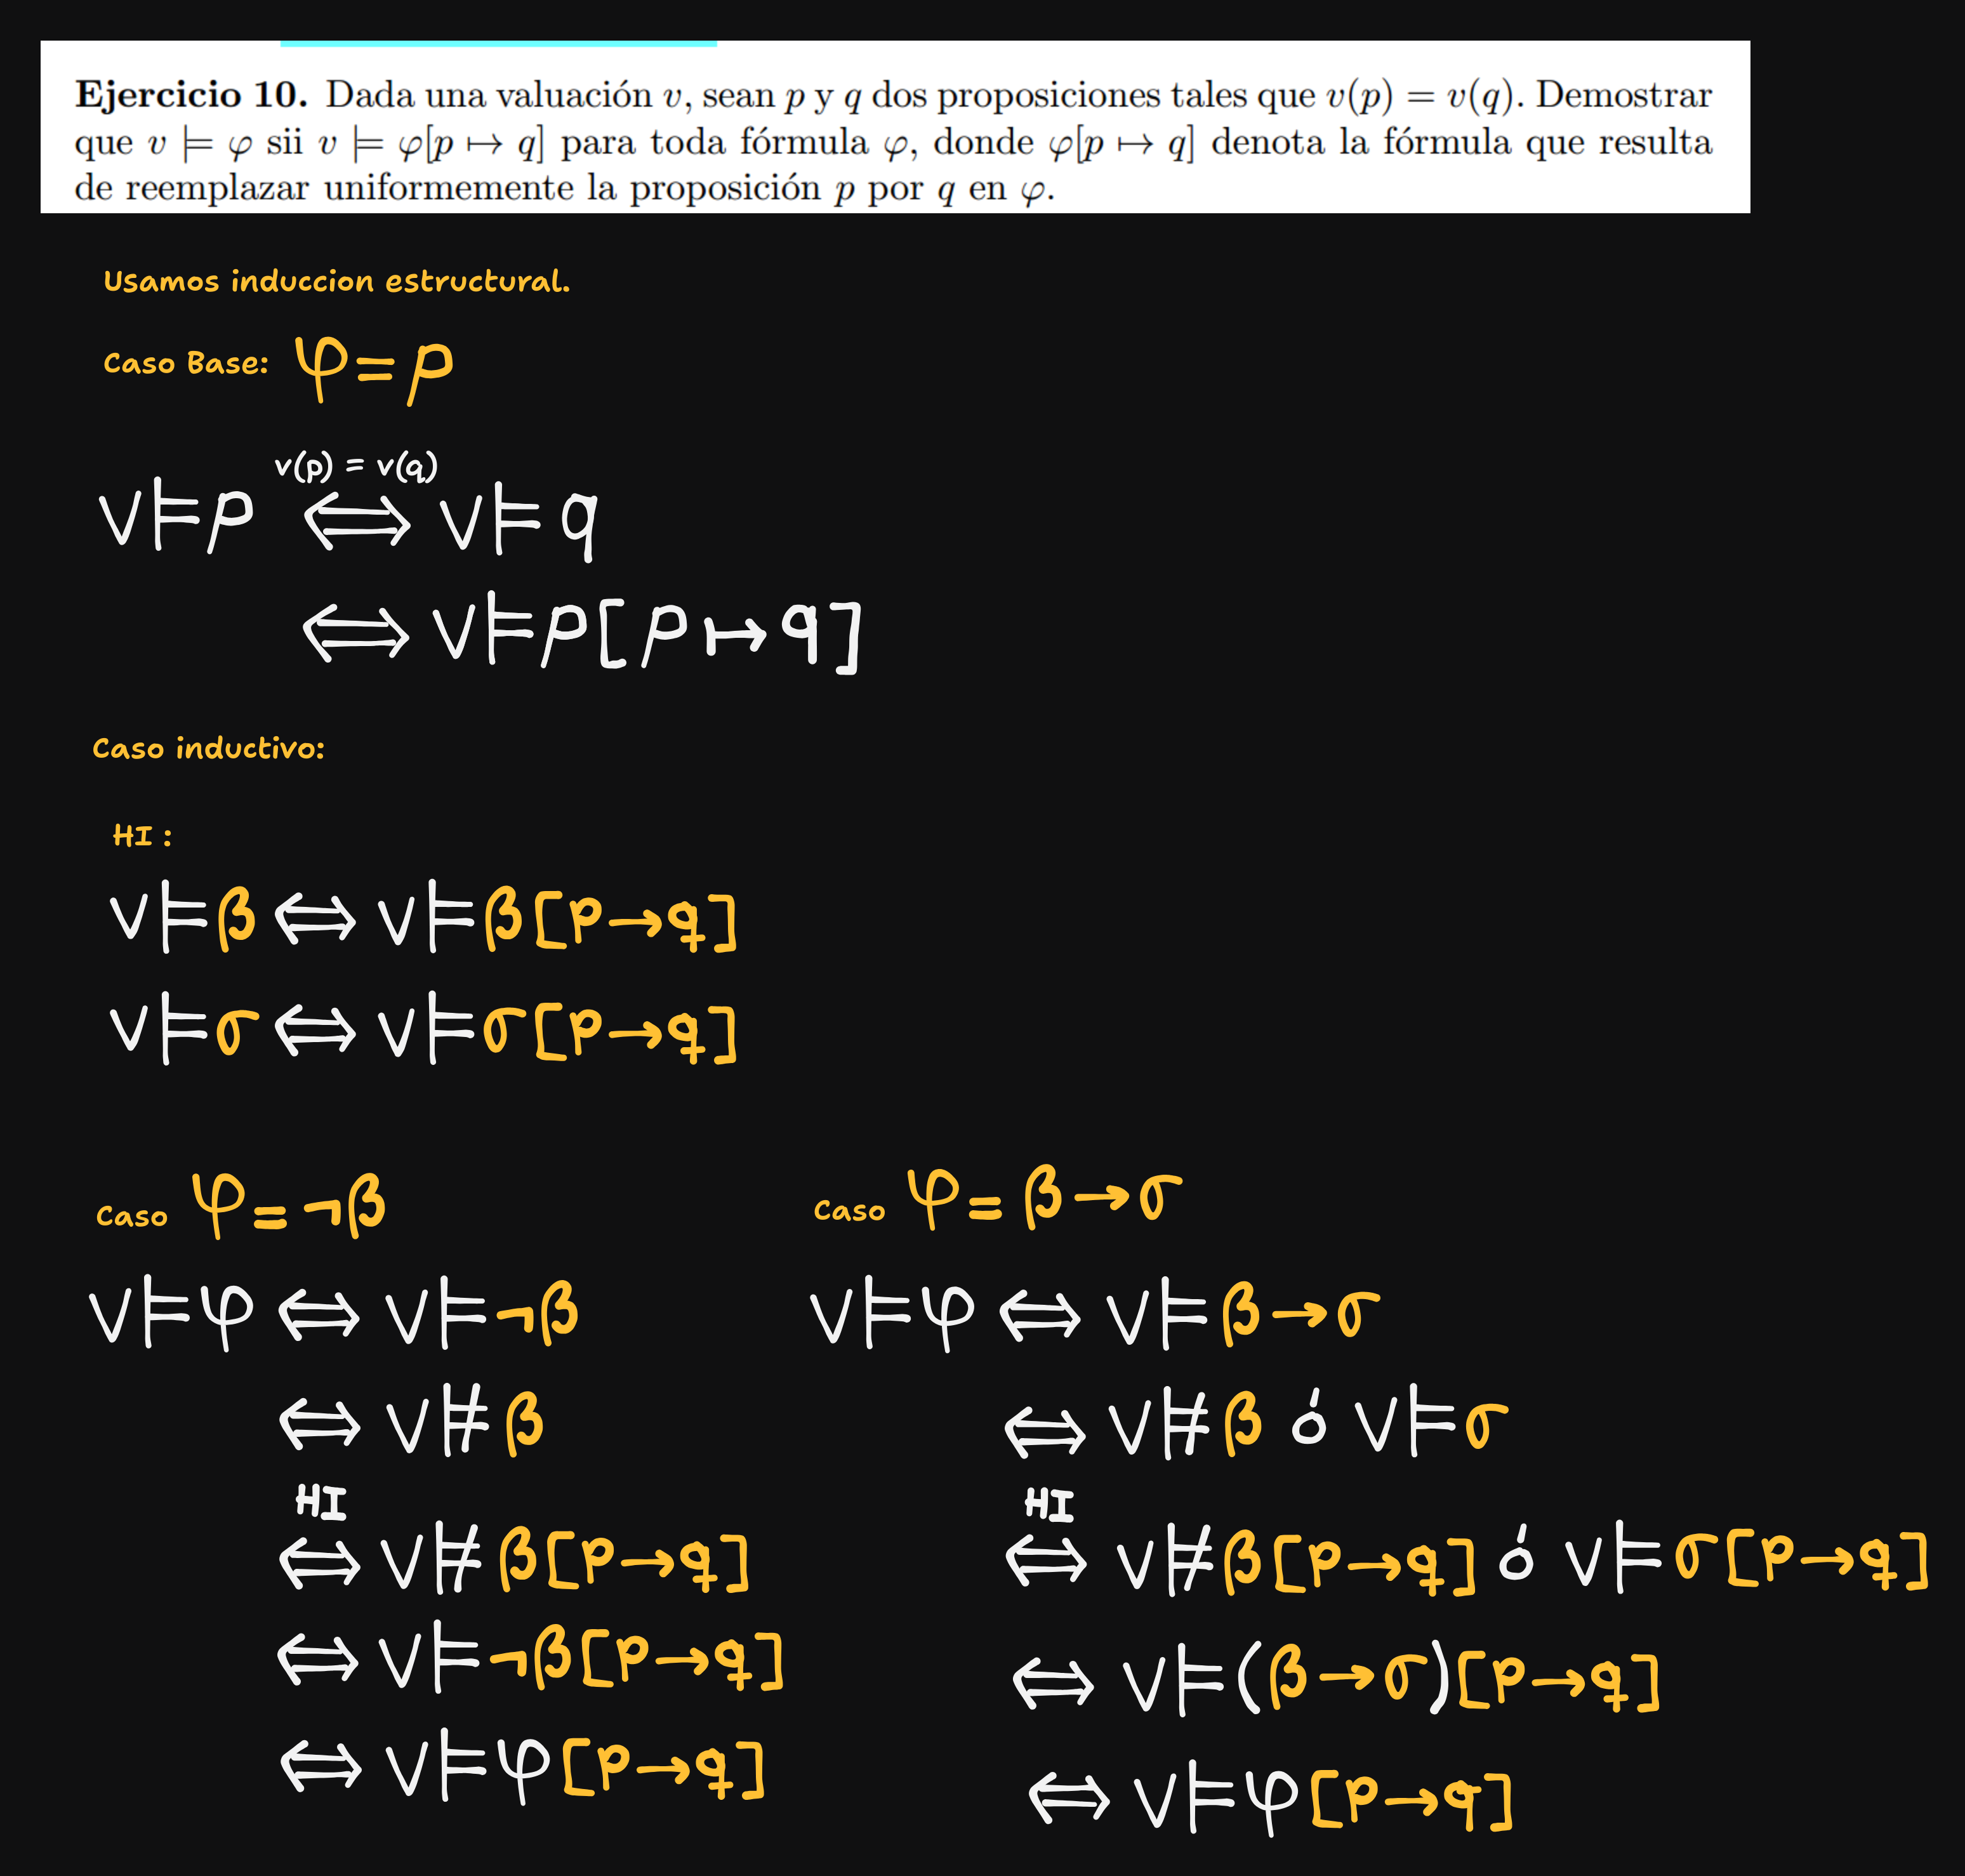 Ejercicio 10. Dada una valuación v, sean p y q dos proposiciones tales que v(p) = v(q). Demostrar
que v ⊨ φ sii v ⊨ φ[p ↦ q] para toda fórmula φ, donde φ[p ↦ q] denota la fórmula que resulta
de reemplazar uniformemente la proposición p por q en φ.
Usamos induccion estructural.
Caso Base: φ = p
v(p) = v(q)
v ⊨ p ⟺ v ⊨ q
⟺ v ⊨ p[p ↦ q]
Caso inductivo:
HI :
v ⊨ β ⟺ v ⊨ β[p → q]
v ⊨ σ ⟺ v ⊨ σ[p → q]
Caso φ = ¬β
v ⊨ φ ⟺ v ⊨ ¬β
⟺ v ⊭ β
HI
⟺ v ⊭ β[p → q]
⟺ v ⊨ ¬β[p → q]
⟺ v ⊨ φ[p → q]
Caso φ = β → σ
v ⊨ φ ⟺ v ⊨ β → σ
⟺ v ⊭ β ó v ⊨ σ
HI
⟺ v ⊭ β[p → q] ó v ⊨ σ[p → q]
⟺ v ⊨ (β → σ)[p → q]
⟺ v ⊨ φ[p → q]